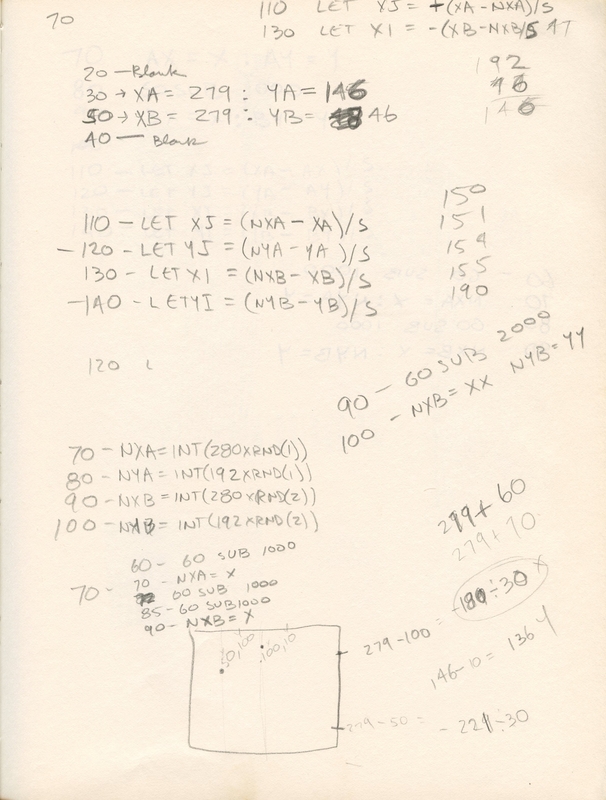 70
110 LET XJ = +(XA-NXA)/S
130 LET XI = -(XB-NXB)/S 47
20 — Blank
30 → XA = 279 : YA = 146
50 → XB = 279 : YB = 46
40 — Blank
192
46
146
110 - LET XJ = (NXA - XA)/S
- 120 - LET YJ = (NYA - YA)/S
130 - LET XI = (NXB - XB)/S
- 140 - LET YI = (NYB - YB)/S
150
151
154
155
190
120 L
90 - GO SUB 2000
100 - NXB = XX NYB = YY
70 - NXA = INT(280×RND(1))
80 - NYA = INT(192×RND(1))
90 - NXB = INT(280×RND(2))
100 - NYB = INT(192×RND(2))
279 + 60
279 + 70
60 - GO SUB 1000
70 - NXA = X
70 - GO SUB 1000
85 - GO SUB 1000
90 - NXB = X
50,100
100,10
279 - 100 = -180 ÷ 30 X
146 - 10 = 136 Y
279 - 50 = - 221 ÷ 30